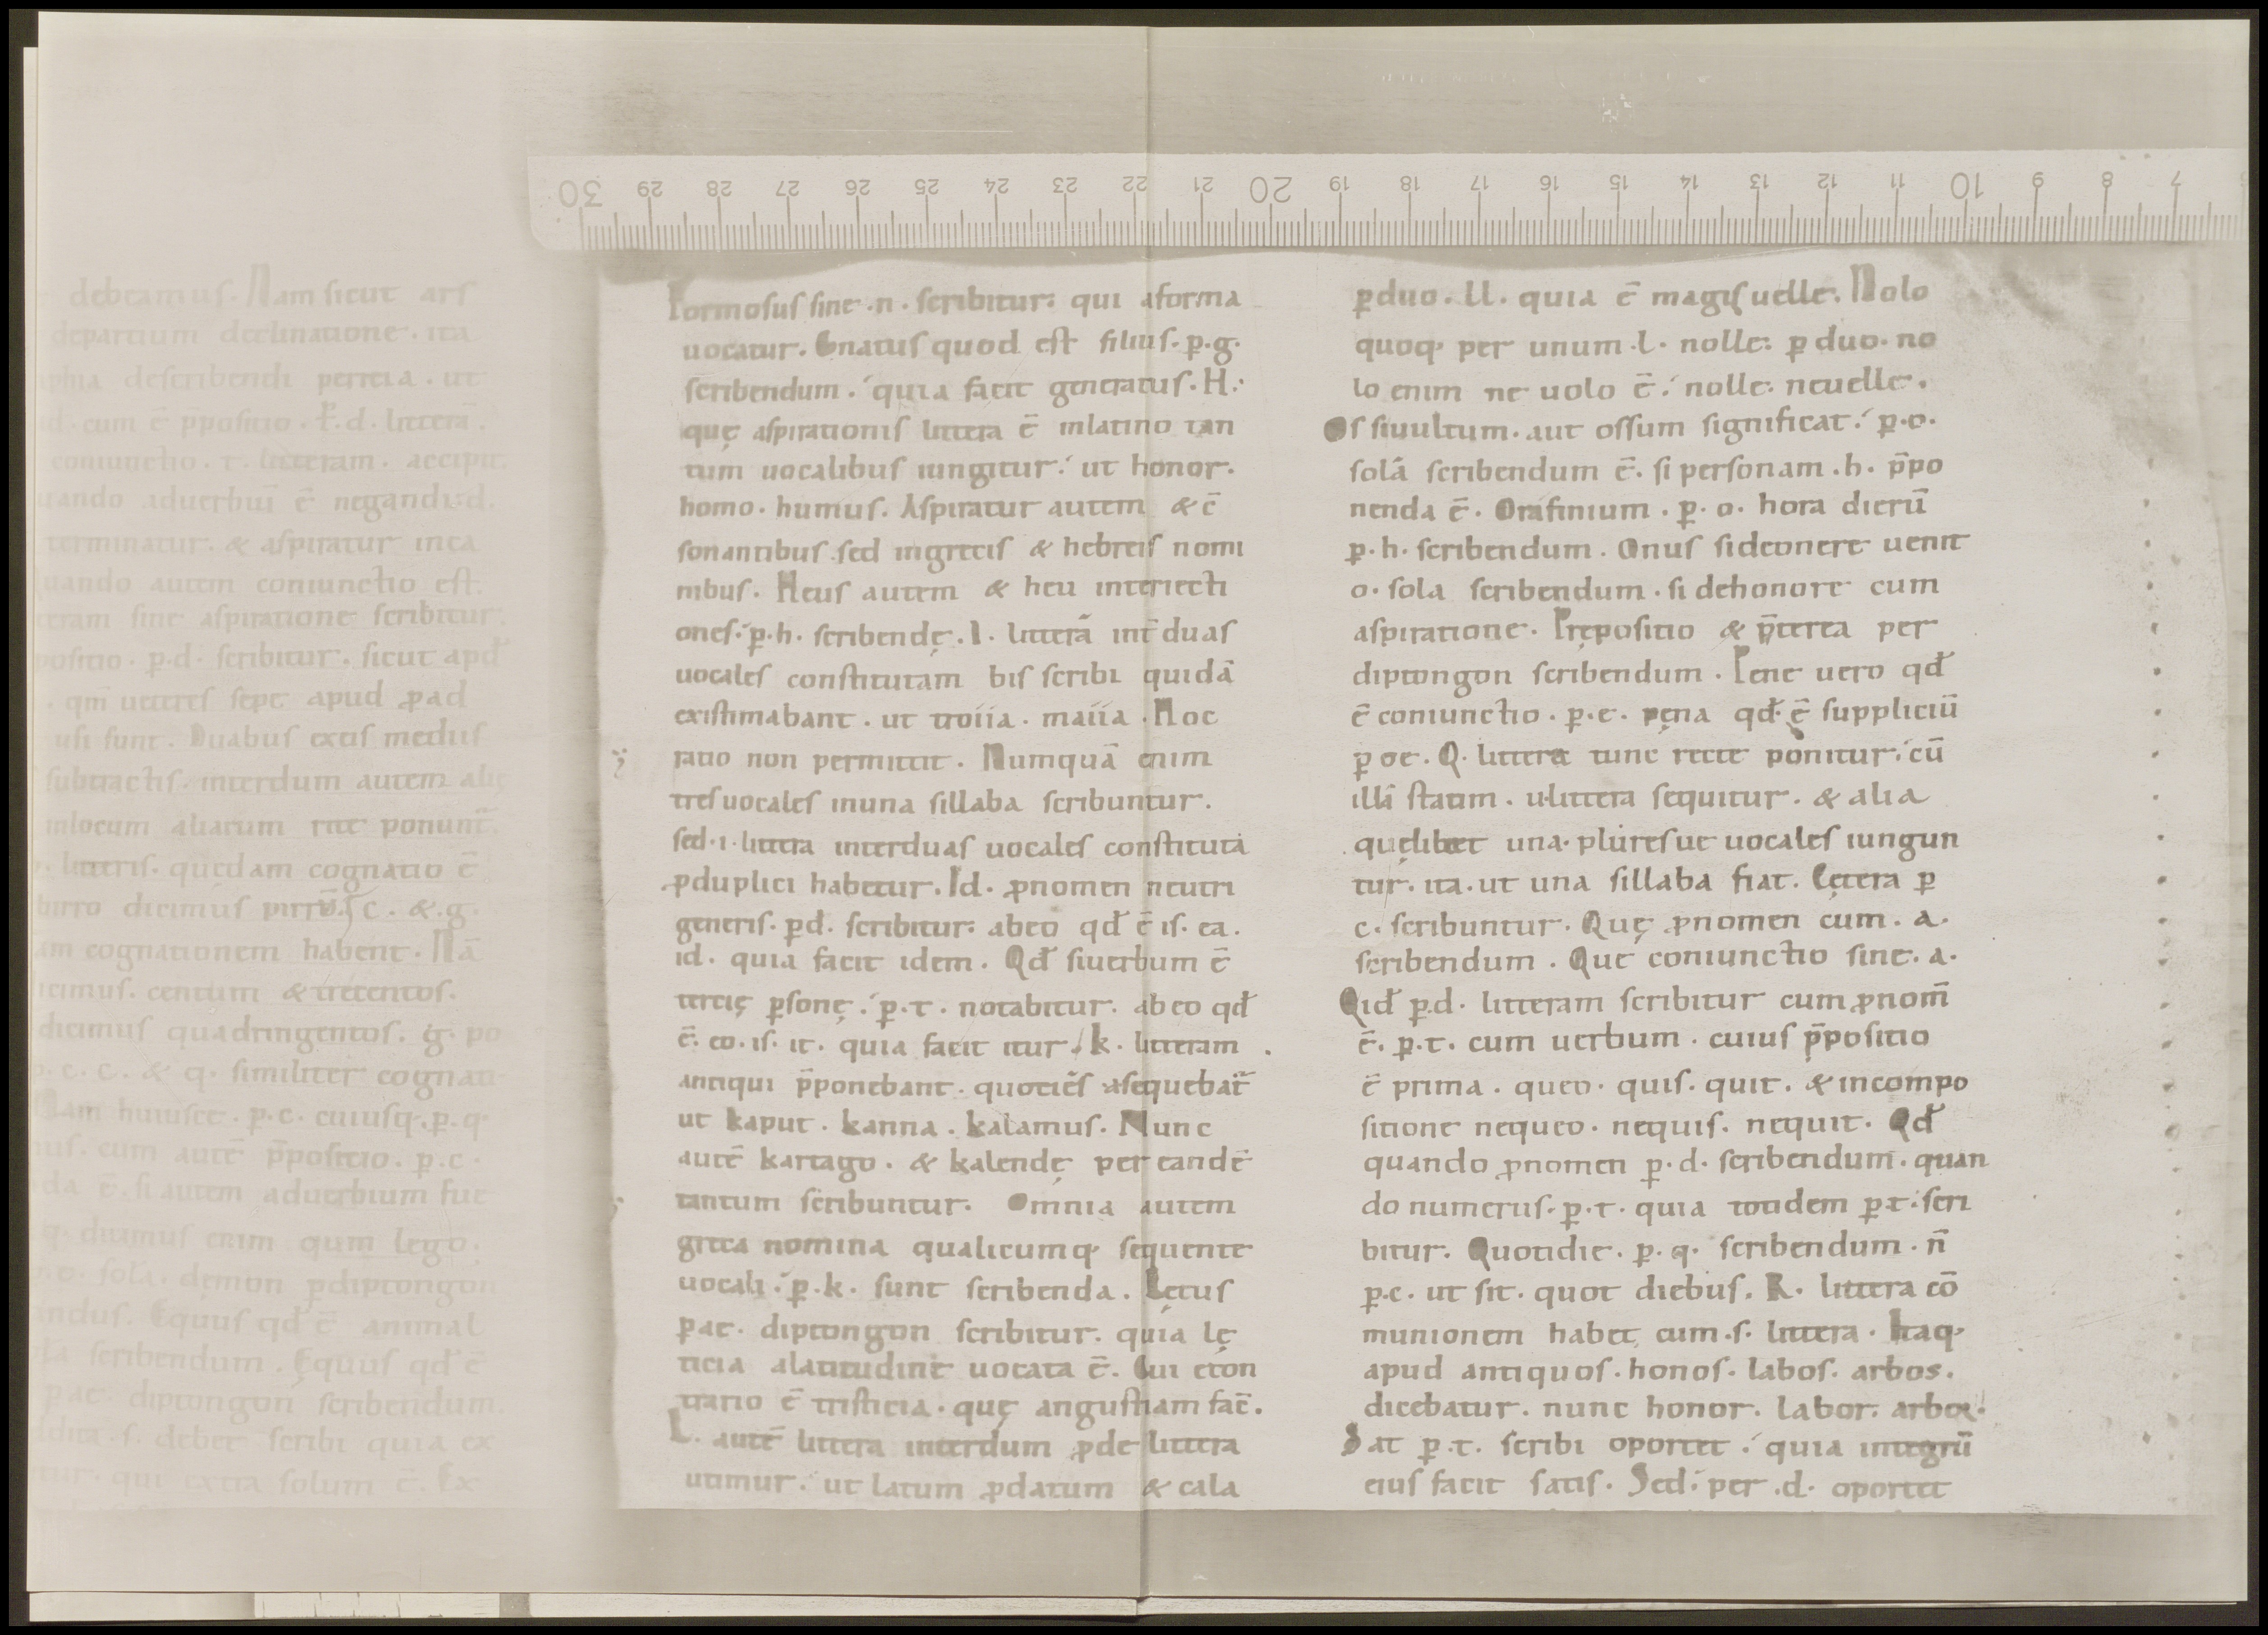 debeamus. Nam sicut ars
departium declinatione. ita
describendi pericia. ut
cum ē p̄positio. ꝑ. d. litterā.
coniunctio. t. litteram. accipit.
aduerbiū ē negandi.d.
terminatur. & aspiratur
autem coniunctio est.
sine aspiratione scribitur.
ꝑ.d. scribitur. sicut apđ
qm̄ ueteres sepe apud ꝓ ad
usi sunt. Duabus extis mediis
subtractis. interdum autem
inlocum aliarum rite ponunt̄.
litteris. quędam cognatio ē
dicimus pirrū. c. &. g.
cognationem habent. Nā
centum & trecentos.
dicimus quadringentos. g. po
c. c. & q. similiter
huiusce. ꝑ. c. cuiusq. ꝑ. q.
cum autē p̄positio. ꝑ. c.
ē. si autem aduerbium fue
enim qum lego.
solā. dęmon ꝑdiptongon
Equus qđ ē animal
scribendum. Ęquus qđ ē
ꝑ ae. diptongon scribendum.
.s. debet scribi quia ex
qui extra solum ē. Ex
Formosus sine .n. scribitur: qui aforma
uocatur. Gnatus quod est filius. ꝑ. g.
scribendum. quia facit generatus. H.
quę aspirationis littera ē inlatino tan
tum uocalibus iungitur. ut honor.
homo. humus. Aspiratur autem & c̄
sonantibus sed ingrecis & hebreis nomi
nibus. Heus autem & heu interiecti
ones. ꝑ. h. scribendę. I. litterā int̄ duas
uocales constitutam bis scribi quidā
existimabant. ut troiia. maiia. Hoc
ratio non permittit. Numquā enim
tres uocales inuna sillaba scribuntur.
sed. i. littera interduas uocales constituta
ꝓduplici habetur. Id. ꝓnomen neutri
generis. ꝑd. scribitur: abeo qđ ē is. ea.
id. quia facit idem. Qđ siuerbum ē
tercię ꝑsonę. ꝑ. t. notabitur. abeo qđ
ē. eo. is. it. quia facit itur. k. litteram
antiqui p̄ponebant. quotiēs asequebat̄
ut kaput. kanna. kalamus. Nunc
autē kartago. & kalendę per eandē
tantum scribuntur. Omnia autem
greca nomina qualicumq; sequente
uocali. ꝑ. k. sunt scribenda. Lętus
ꝑ ae. diptongon scribitur. quia lę
ticia alatitudine uocata ē. Cui econ
trario ē tristicia. quę angustiam fac̄.
L. autē littera interdum ꝓde littera
utimur. ut latum ꝓdatum & cala
ꝑduo. ll. quia ē magis uelle. Nolo
quoq; per unum .l. nolle: ꝑ duo. no
lo enim ne uolo ē. nolle. neuelle.
Os siuultum. aut ossum significat. ꝑ. o.
solā scribendum ē. si personam .h. p̄po
nenda ē. Orafinium. ꝑ. o. hora dierū
ꝑ. h. scribendum. Onus sideonere uenit
o. sola scribendum. si dehonore cum
aspiratione. Prępositio & p̄terea per
diptongon scribendum. Pene uero qđ
ē coniunctio. ꝑ. e. pęna qđ. ē suppliciū
ꝑ oe. Q. littera tunc recte ponitur. cū
illā statim. u.littera sequitur. & alia
quęlibet una. pluresue uocales iungun
tur. ita. ut una sillaba fiat. Cętera ꝑ
c. scribuntur. Quę ꝓnomen cum. a.
scribendum. Que coniunctio sine. a.
Qiđ ꝑ.d. litteram scribitur cum ꝓnom̄
ē. ꝑ. t. cum uerbum. cuius p̄positio
ē prima. queo. quis. quit. & incompo
sitione nequeo. nequis. nequit. Qđ
quando ꝓnomen ꝑ. d. scribendum. quan
do numerus. ꝑ. t. quia totidem ꝑ t. scri
bitur. Quotidie. ꝑ. q. scribendum. n̄
ꝑ. c. ut sit. quot diebus. R. littera cō
munionem habet cum .s. littera. Itaq;
apud antiquos. honos. labos. arbos.
dicebatur. nunc honor. labor. arbor.
Sat ꝑ. t. scribi oportet. quia integrū
eius facit satis. Sed. per .d. oportet
30 29 28 27 26 25 24 23 22 21 20 19 18 17 16 15 14 13 12 11 10 9 8 7